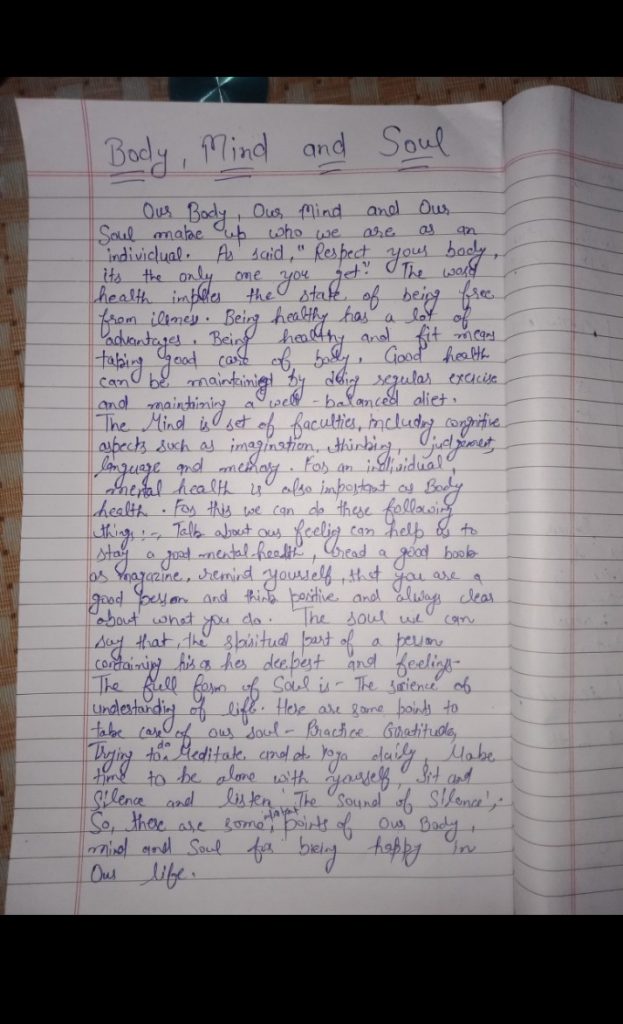 Body, Mind and Soul
Our Body, Our Mind and Our
Soul make up who we are as an
individual. As said," Respect your body,
its the only one you get." The word
health implies the state of being free
from illness. Being healthy has a lot of
advantages. Being healthy and fit means
taking good care of body. Good health
can be maintainied by doing regular exercise
and maintaining a well-balanced diet.
The Mind is set of faculties, including congnitive
aspects such as imagination, thinking, judgement,
language and memory. For an individual,
mental health is also important as Body
health. For this we can do these following
things:-, Talk about our feelig can help us to
stay a good mental-health, read a good book
or magazine, remind yourself, that you are a
good person and think positive and always clear
about what you do. The soul we can
say that, the spiritual part of a person
containing his or her deepest and feelings-
The full form of Soul is - The science of
understanding of life. Here are some points to
take care of our soul - Practice Gratitude,
Trying to do Meditate and yoga daily, Make
time to be alone with yourself, Sit and
Silence and listen 'The Sound of Silence',.
So, there are some points of Our Body,
mind and Soul for being happy in
Our life.